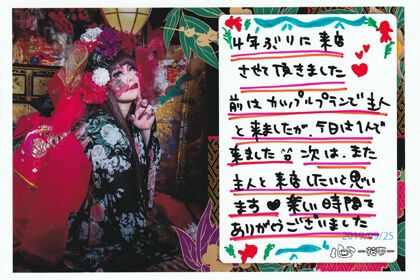 4年ぶりに来店
させて頂きました
前はカップルプランで主人
と来ましたが、今日は1人で
来ました 次は、また
主人と来店したいと思い
ます♥ 楽しい時間を
ありがとうございました
2019/09/25